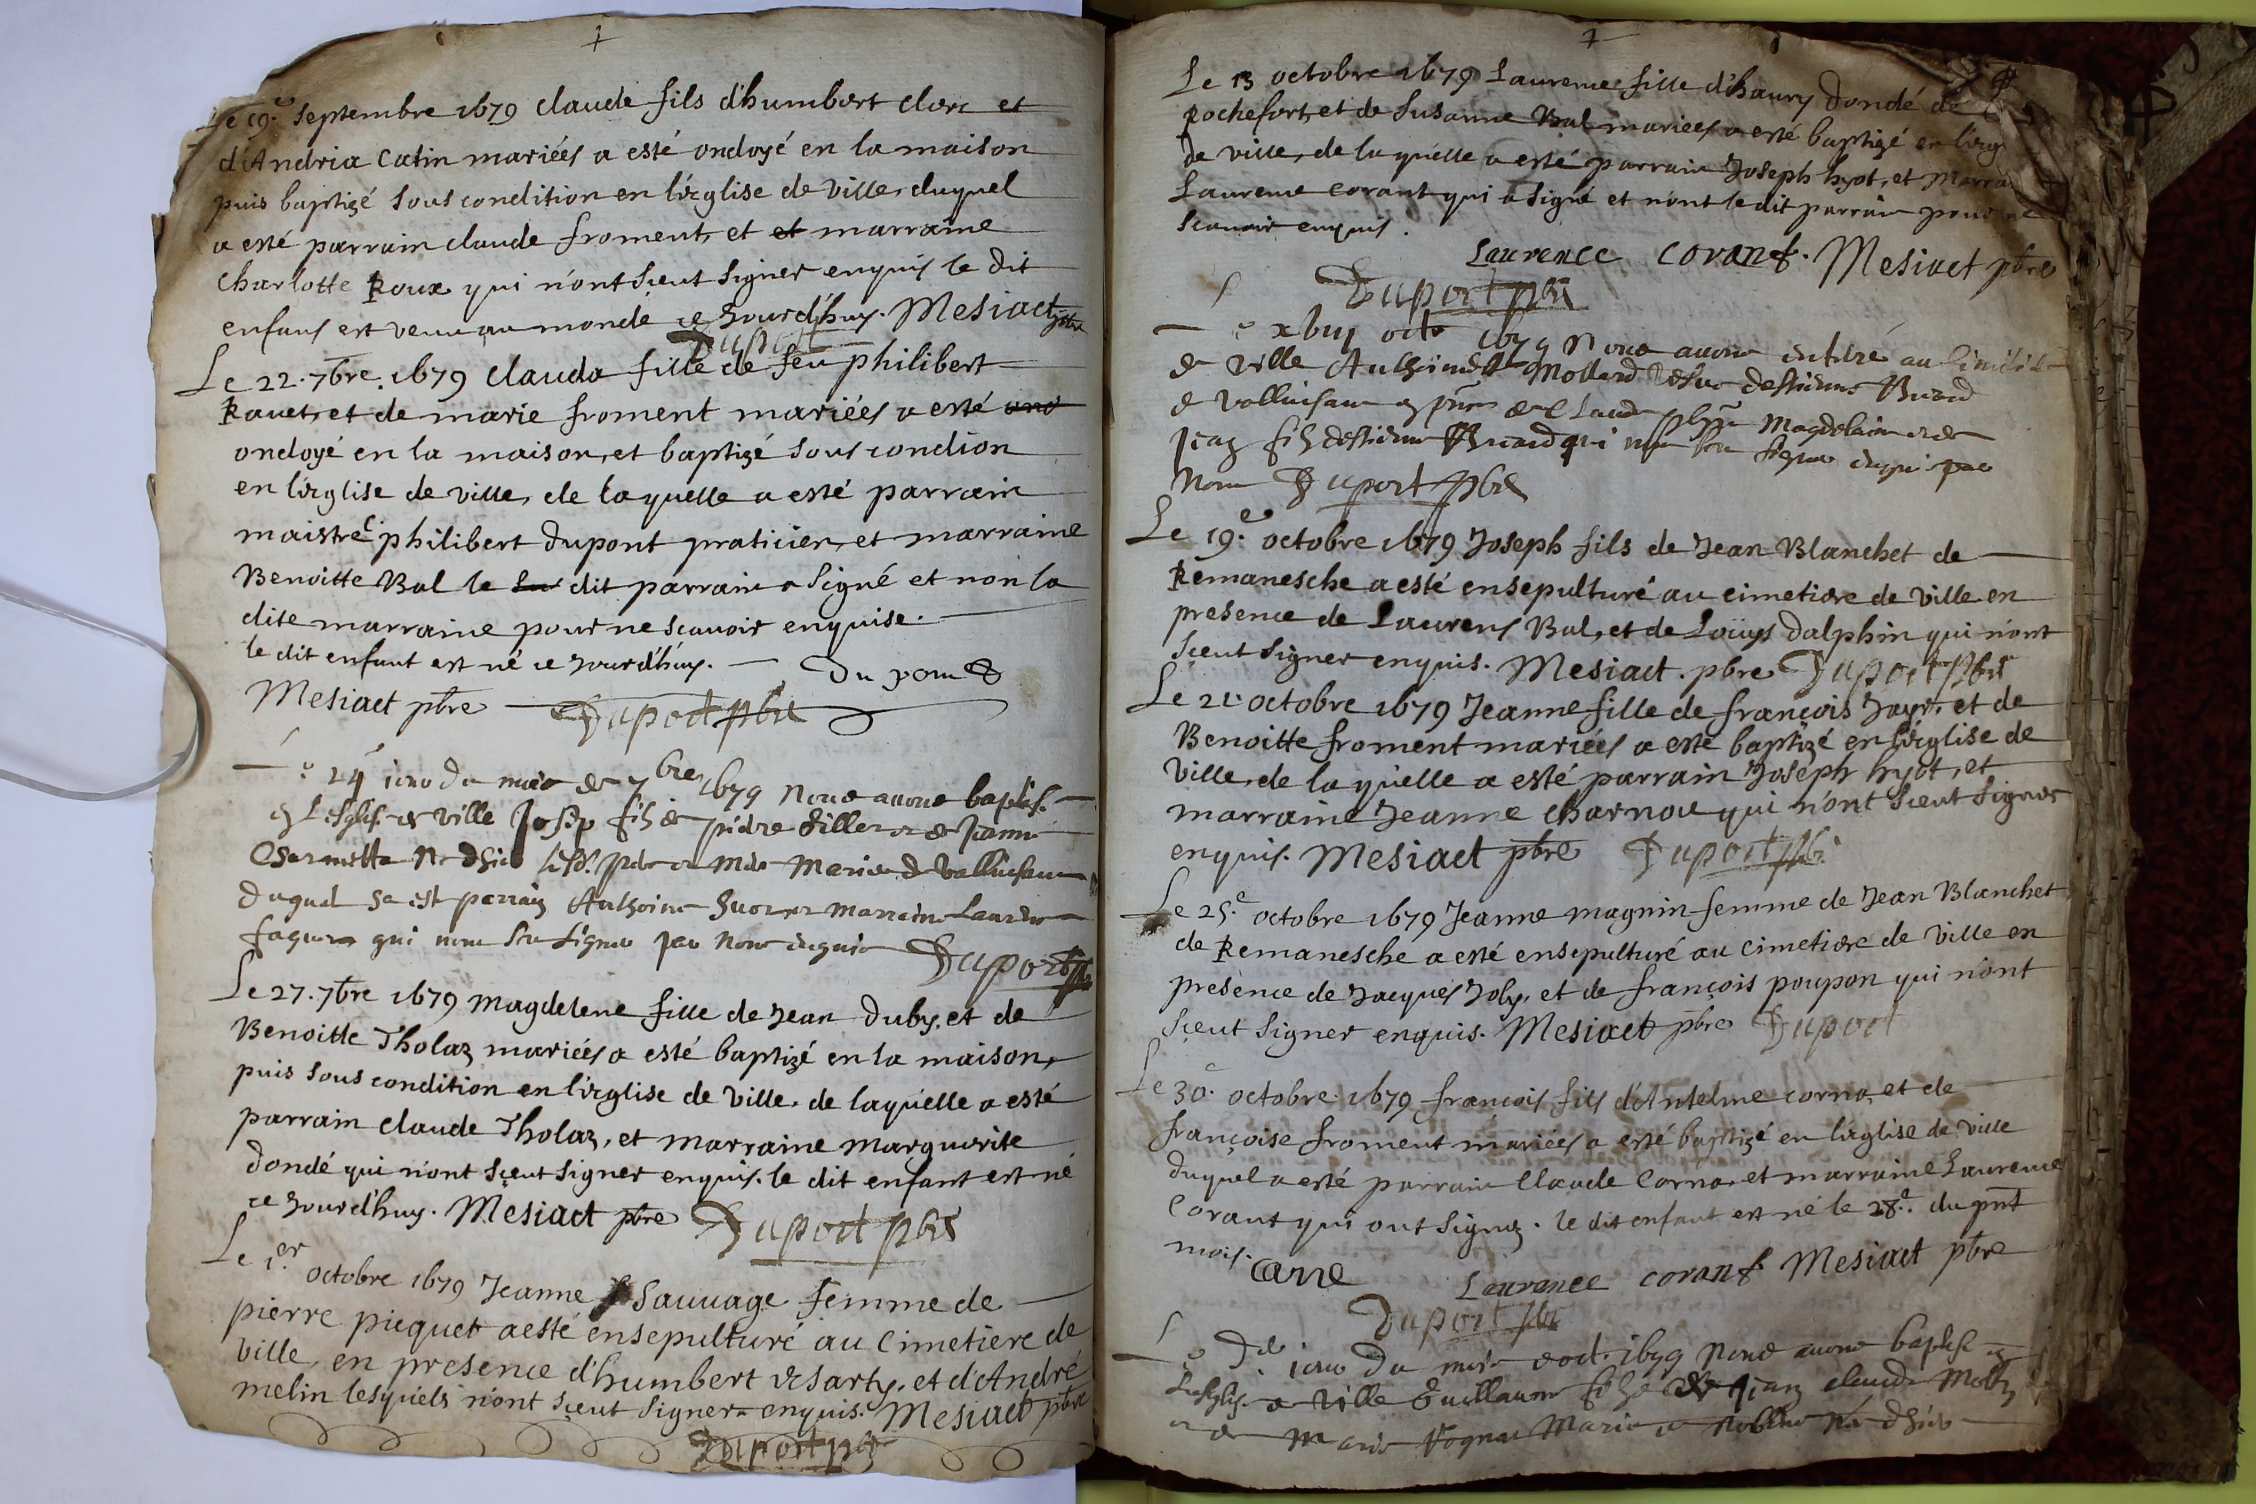 Le 19.e Septembre 1679 claude fils d'humbert clerc et
d'Andria Catin mariées a esté ondoyé en la maison
puis baptizé sous condition en l'eglise de ville, duquel
a esté parrain claude froment, et et marraine
Charlotte Roux qui n'ont sceut signer enquis le dit
enfans est venu au monde ce Jourd'huy. Mesiact pbre
Duport
Le 22. 7bre. 1679 clauda fille de feu philibert
Ravet, et de marie froment mariées a esté ond
ondoyé en la maison, et baptizé sous condion
en l'eglise de ville, de laquelle a esté parrain
maistre philibert dupont praticien, et marraine
Benoitte Bal le dit parrain a signé et non la
dite marraine pour ne scavoir enquise.
le dit enfant est né ce Jourd'huy. Du pont
Mesiact pbre Duport pbre
24 jour du mois de 7bre 1679 Nous avons baptisé
en L'eglise de ville Josep fils de pidre et de Jeanne
mariés de
duquel a est parrain Anthoine et marraine
qui nont sceu signer par nous enquis Duport pbre
Le 27. 7bre 1679 Magdelene fille de Jean Duby, et de
Benoitte Tholaz mariées a esté baptizé en la maison,
puis sous condition en l'eglise de ville. de laquelle a esté
parrain claude Tholaz, et marraine marguerite
dondé qui n'ont sceut signer enquis. le dit enfant est né
ce Jourd'huy. Mesiact pbre Duport pbre
Le 1.er octobre 1679 Jeanne Sauvage femme de
pierre picquet a esté ensepulturé au Cimetiere de
ville, en presence d'humbert desarty, et d'André
melin lesquels n'ont sceut signer enquis. Mesiact pbre
Duport pbre
Le 13 octobre 1679 Laurence fille d'haury dondé de
Rochefort, et de Susanne Bal mariées a esté baptizé en l'eg
de ville, de laquelle a esté parrain Joseph hyot, et Marra
Laurence corant qui a signé et n'ont le dit parrain pour ne
scavoir enquis.
Laurence corant. Mesiact pbre
Duport pbre
xbiij octo 1679 Nous avons enterré au
de ville Anthoinette Mollard destienne Brard
Magdelaine
Jean fils destienne Brard qui signer enquis par
Nous Duport pbre
Le 19.e octobre 1679 Joseph fils de Jean Blanchet de
Remanesche a esté ensepulturé au cimetiere de ville en
presence de Laurens Bal, et de Loüys dalphin qui n'ont
sceut signer enquis. Mesiact. pbre Duport pbre
Le 21. octobre 1679 Jeanne fille de françois Jayr, et de
Benoitte froment mariées a esté baptizé en l'eglise de
ville, de laquelle a esté parrain Joseph hyot, et
marraine Jeanne charnou qui n'ont sceut signer
enquis. Mesiact pbre Duport pbre
Le 25.e octobre 1679 Jeanne magnin femme de Jean Blanchet
de Remanesche a esté ensepulturé au cimetiere de ville en
presence de Jacques Joly, et de françois poupon qui n'ont
sceut signer enquis. Mesiact pbre Duport
Le 30.e octobre. 1679 françois fils d'Antelme corna, et de
françoise froment mariées a esté baptizé en l'eglise de ville
duquel a esté parrain Claude Corna, et marraine Laurence
Corant qui ont signez. le dit enfant est né le 28.e du pnt
mois.
Laurance corant Mesiact pbre
Duport pbre
jour du mois doct. 1679 Nous avons baptisé en
L'eglise de ville Guillaume fils de Jean claude
et de Marie